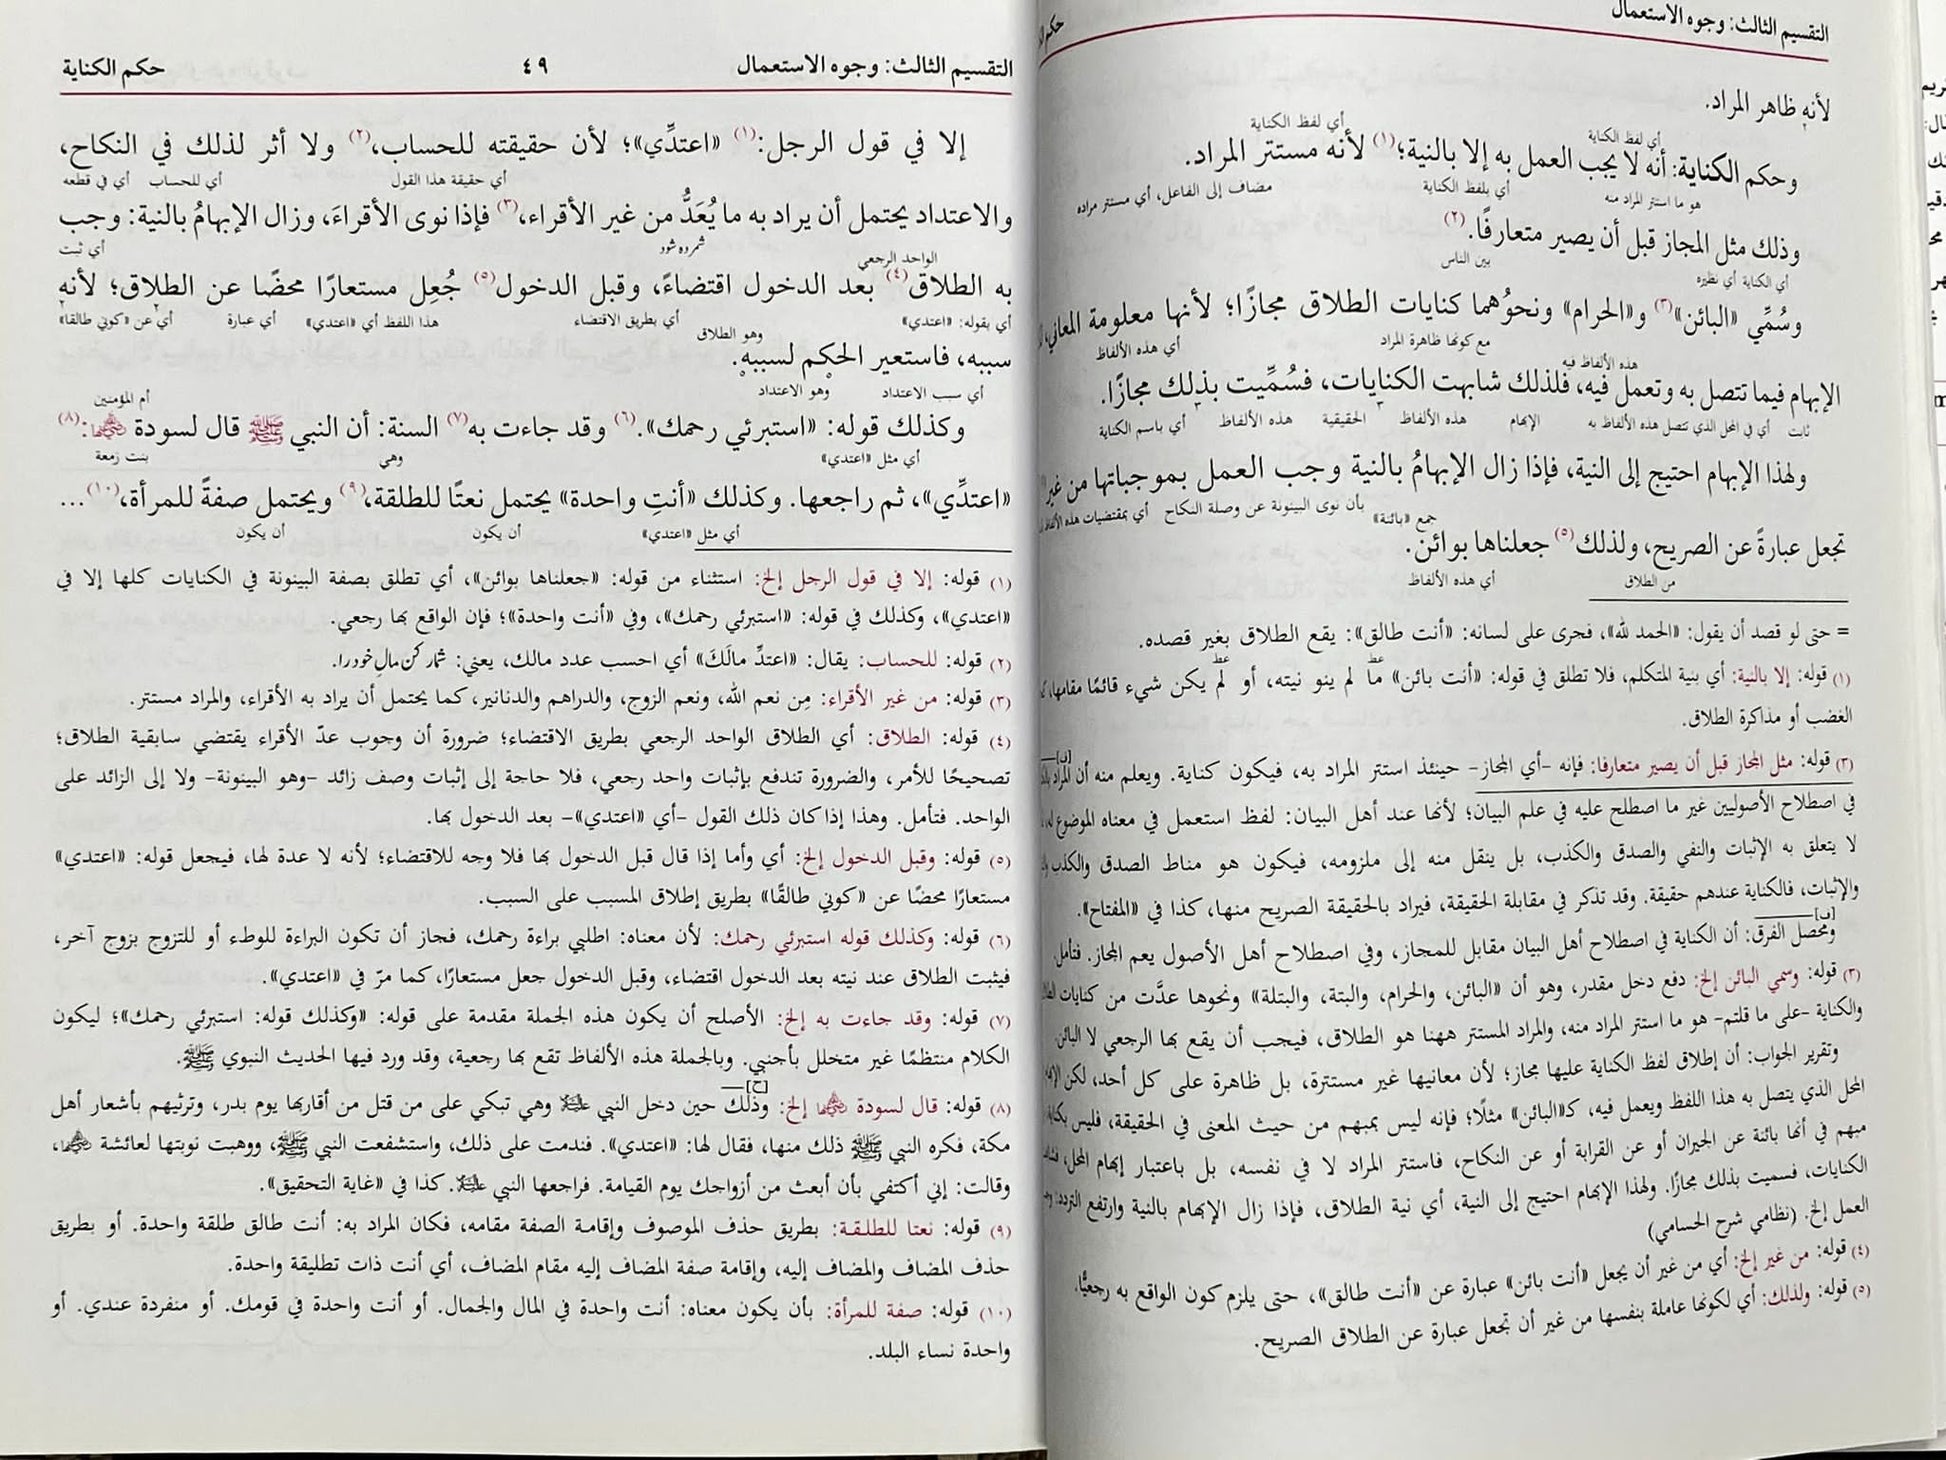 التقسيم الثالث: وجوه الاستعمال
لأنه ظاهر المراد.
أي لفظ الكناية أي لفظ الكناية
وحكم الكناية: أنه لا يجب العمل به إلا بالنية؛(١) لأنه مستتر المراد.
هو ما استتر المراد منه أي بلفظ الكناية مضاف إلى الفاعل، أي مستتر مراده
وذلك مثل المجاز قبل أن يصير متعارفًا.(٢)
أي الكناية أي نظيره بين الناس
وسُمِّي «البائن»(٣) و«الحرام» ونحوُهما كنايات الطلاق مجازًا؛ لأنها معلومة المعاني،
مع كونها ظاهرة المراد أي هذه الألفاظ
هذه الألفاظ فيه
الإبهام فيما تتصل به وتعمل فيه، فلذلك شابهت الكنايات، فسُمِّيت بذلك مجازًا.
ثابت أي في المحل الذي تتصل هذه الألفاظ به الإبهام هذه الألفاظ الحقيقية هذه الألفاظ أي باسم الكناية
ولهذا الإبهام احتيج إلى النية، فإذا زال الإبهامُ بالنية وجب العمل بموجباتها من غير
بأن نوى البينونة عن وصلة النكاح أي بمقتضيات هذه الألفاظ
جمع «بائنة»
تجعل عبارةً عن الصريح، ولذلك(٥) جعلناها بوائن.
من الطلاق أي هذه الألفاظ
= حتى لو قصد أن يقول: «الحمد لله»، فجرى على لسانه: «أنت طالق»: يقع الطلاق بغير قصده.
(١) قوله: إلا بالنية: أي بنية المتكلم، فلا تطلق في قوله: «أنت بائن» ما لم ينو نيته، أو لم يكن شيء قائمًا مقامها،
الغضب أو مذاكرة الطلاق.
(٢) قوله: مثل المجاز قبل أن يصير متعارفا: فإنه -أي المجاز- حينئذ استتر المراد به، فيكون كناية. ويعلم منه أن المراد
في اصطلاح الأصوليين غير ما اصطلح عليه في علم البيان؛ لأنها عند أهل البيان: لفظ استعمل في معناه الموضوع
لا يتعلق به الإثبات والنفي والصدق والكذب، بل ينقل منه إلى ملزومه، فيكون هو مناط الصدق والكذب
والإثبات، فالكناية عندهم حقيقة. وقد تذكر في مقابلة الحقيقة، فيراد بالحقيقة الصريح منها، كذا في «المفتاح».
ومحصل الفرق: أن الكناية في اصطلاح أهل البيان مقابل للمجاز، وفي اصطلاح أهل الأصول يعم المجاز. فتأمل.
(٣) قوله: وسمي البائن إلخ: دفع دخل مقدر، وهو أن «البائن، والحرام، والبتة، والبتلة» ونحوها عدَّت من كنايات
والكناية -على ما قلتم- هو ما استتر المراد منه، والمراد المستتر ههنا هو الطلاق، فيجب أن يقع بها الرجعي لا البائن.
وتقرير الجواب: أن إطلاق لفظ الكناية عليها مجاز؛ لأن معانيها غير مستترة، بل ظاهرة على كل أحد، لكن
المحل الذي يتصل به هذا اللفظ ويعمل فيه، كـ«البائن» مثلًا؛ فإنه ليس بمبهم من حيث المعنى في الحقيقة، فليس
مبهم في أنها بائنة عن الجيران أو عن القرابة أو عن النكاح، فاستتر المراد لا في نفسه، بل باعتبار إبهام المحل،
الكنايات، فسميت بذلك مجازًا. ولهذا الإبهام احتيج إلى النية، أي نية الطلاق، فإذا زال الإبهام بالنية وارتفع التردد:
العمل إلخ. (نظامي شرح الحسامي)
(٤) قوله: من غير إلخ: أي من غير أن يجعل «أنت بائن» عبارة عن «أنت طالق»، حتى يلزم كون الواقع به رجعيًّا.
(٥) قوله: ولذلك: أي لكونها عاملة بنفسها من غير أن تجعل عبارة عن الطلاق الصريح.
التقسيم الثالث: وجوه الاستعمال ٤٩ حكم الكناية
إلا في قول الرجل:(١) «اعتدِّي»؛ لأن حقيقته للحساب،(٢) ولا أثر لذلك في النكاح،
أي حقيقة هذا القول أي للحساب أي في قطعه
والاعتداد يحتمل أن يراد به ما يُعَدُّ من غير الأقراء،(٣) فإذا نوى الأقراءَ، وزال الإبهامُ بالنية: وجب
شمرده شود أي ثبت
الواحد الرجعي
به الطلاق(٤) بعد الدخول اقتضاءً، وقبل الدخول(٥) جُعِل مستعارًا محضًا عن الطلاق؛ لأنه
أي بقوله: «اعتدي» أي بطريق الاقتضاء هذا اللفظ أي «اعتدي» أي عبارة أي عن «كوني طالقا»
وهو الطلاق
سببه، فاستعير الحكم لسببه.
أي سبب الاعتداد وهو الاعتداد
أم المؤمنين
وكذلك قوله: «استبرئي رحمك».(٦) وقد جاءت به(٧) السنة: أن النبي ﷺ قال لسودة رضي الله عنها:(٨)
أي مثل «اعتدي» وهي بنت زمعة
«اعتدِّي»، ثم راجعها. وكذلك «أنتِ واحدة» يحتمل نعتًا للطلقة،(٩) ويحتمل صفةً للمرأة،(١٠) ...
أي مثل «اعتدي» أن يكون أن يكون
(١) قوله: إلا في قول الرجل إلخ: استثناء من قوله: «جعلناها بوائن»، أي تطلق بصفة البينونة في الكنايات كلها إلا في
«اعتدي»، وكذلك في قوله: «استبرئي رحمك»، وفي «أنت واحدة»؛ فإن الواقع بها رجعي.
(٢) قوله: للحساب: يقال: «اعتدِّ مالَكَ» أي احسب عدد مالك، يعني: شمار کن مالِ خود را.
(٣) قوله: من غير الأقراء: مِن نعم الله، ونعم الزوج، والدراهم والدنانير، كما يحتمل أن يراد به الأقراء، والمراد مستتر.
(٤) قوله: الطلاق: أي الطلاق الواحد الرجعي بطريق الاقتضاء؛ ضرورة أن وجوب عدّ الأقراء يقتضي سابقية الطلاق؛
تصحيحًا للأمر، والضرورة تندفع بإثبات واحد رجعي، فلا حاجة إلى إثبات وصف زائد -وهو البينونة- ولا إلى الزائد على
الواحد. فتأمل. وهذا إذا كان ذلك القول -أي «اعتدي»- بعد الدخول بها.
(٥) قوله: وقبل الدخول إلخ: أي وأما إذا قال قبل الدخول بها فلا وجه للاقتضاء؛ لأنه لا عدة لها، فيجعل قوله: «اعتدي»
مستعارًا محضًا عن «كوني طالقًا» بطريق إطلاق المسبب على السبب.
(٦) قوله: وكذلك قوله استبرئي رحمك: لأن معناه: اطلبي براءة رحمك، فجاز أن تكون البراءة للوطء أو للتزوج بزوج آخر،
فيثبت الطلاق عند نيته بعد الدخول اقتضاء، وقبل الدخول جعل مستعارًا، كما مرّ في «اعتدي».
(٧) قوله: وقد جاءت به إلخ: الأصلح أن يكون هذه الجملة مقدمة على قوله: «وكذلك قوله: استبرئي رحمك»؛ ليكون
الكلام منتظمًا غير متخلل بأجنبي. وبالجملة هذه الألفاظ تقع بها رجعية، وقد ورد فيها الحديث النبوي ﷺ.
(٨) قوله: قال لسودة رضي الله عنها إلخ: وذلك حين دخل النبي عليه السلام وهي تبكي على من قتل من أقاربها يوم بدر، وترثيهم بأشعار أهل
مكة، فكره النبي ﷺ ذلك منها، فقال لها: «اعتدي». فندمت على ذلك، واستشفعت النبي ﷺ، ووهبت نوبتها لعائشة رضي الله عنها،
وقالت: إني أكتفي بأن أبعث من أزواجك يوم القيامة. فراجعها النبي عليه السلام. كذا في «غاية التحقيق».
(٩) قوله: نعتا للطلقة: بطريق حذف الموصوف وإقامة الصفة مقامه، فكان المراد به: أنت طالق طلقة واحدة. أو بطريق
حذف المضاف والمضاف إليه، وإقامة صفة المضاف إليه مقام المضاف، أي أنت ذات تطليقة واحدة.
(١٠) قوله: صفة للمرأة: بأن يكون معناه: أنت واحدة في المال والجمال. أو أنت واحدة في قومك. أو منفردة عندي. أو
واحدة نساء البلد.